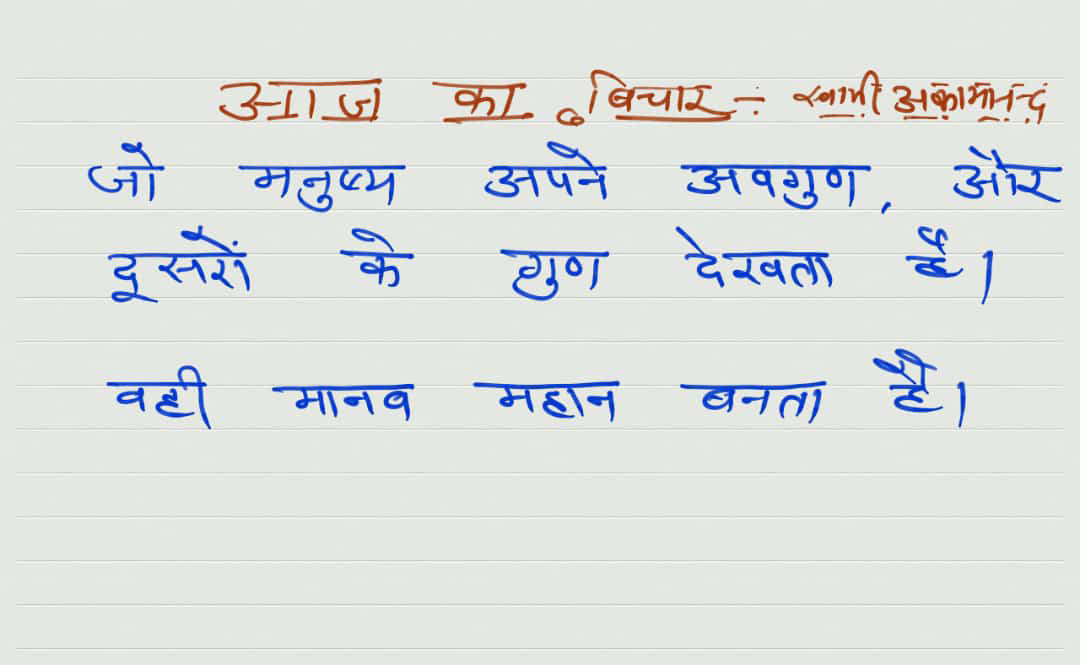 आज का विचार ÷ स्वामी अकामानन्द
जो मनुष्य अपने अवगुण, और
दूसरों के गुण देखता है।
वही मानव महान बनता है।